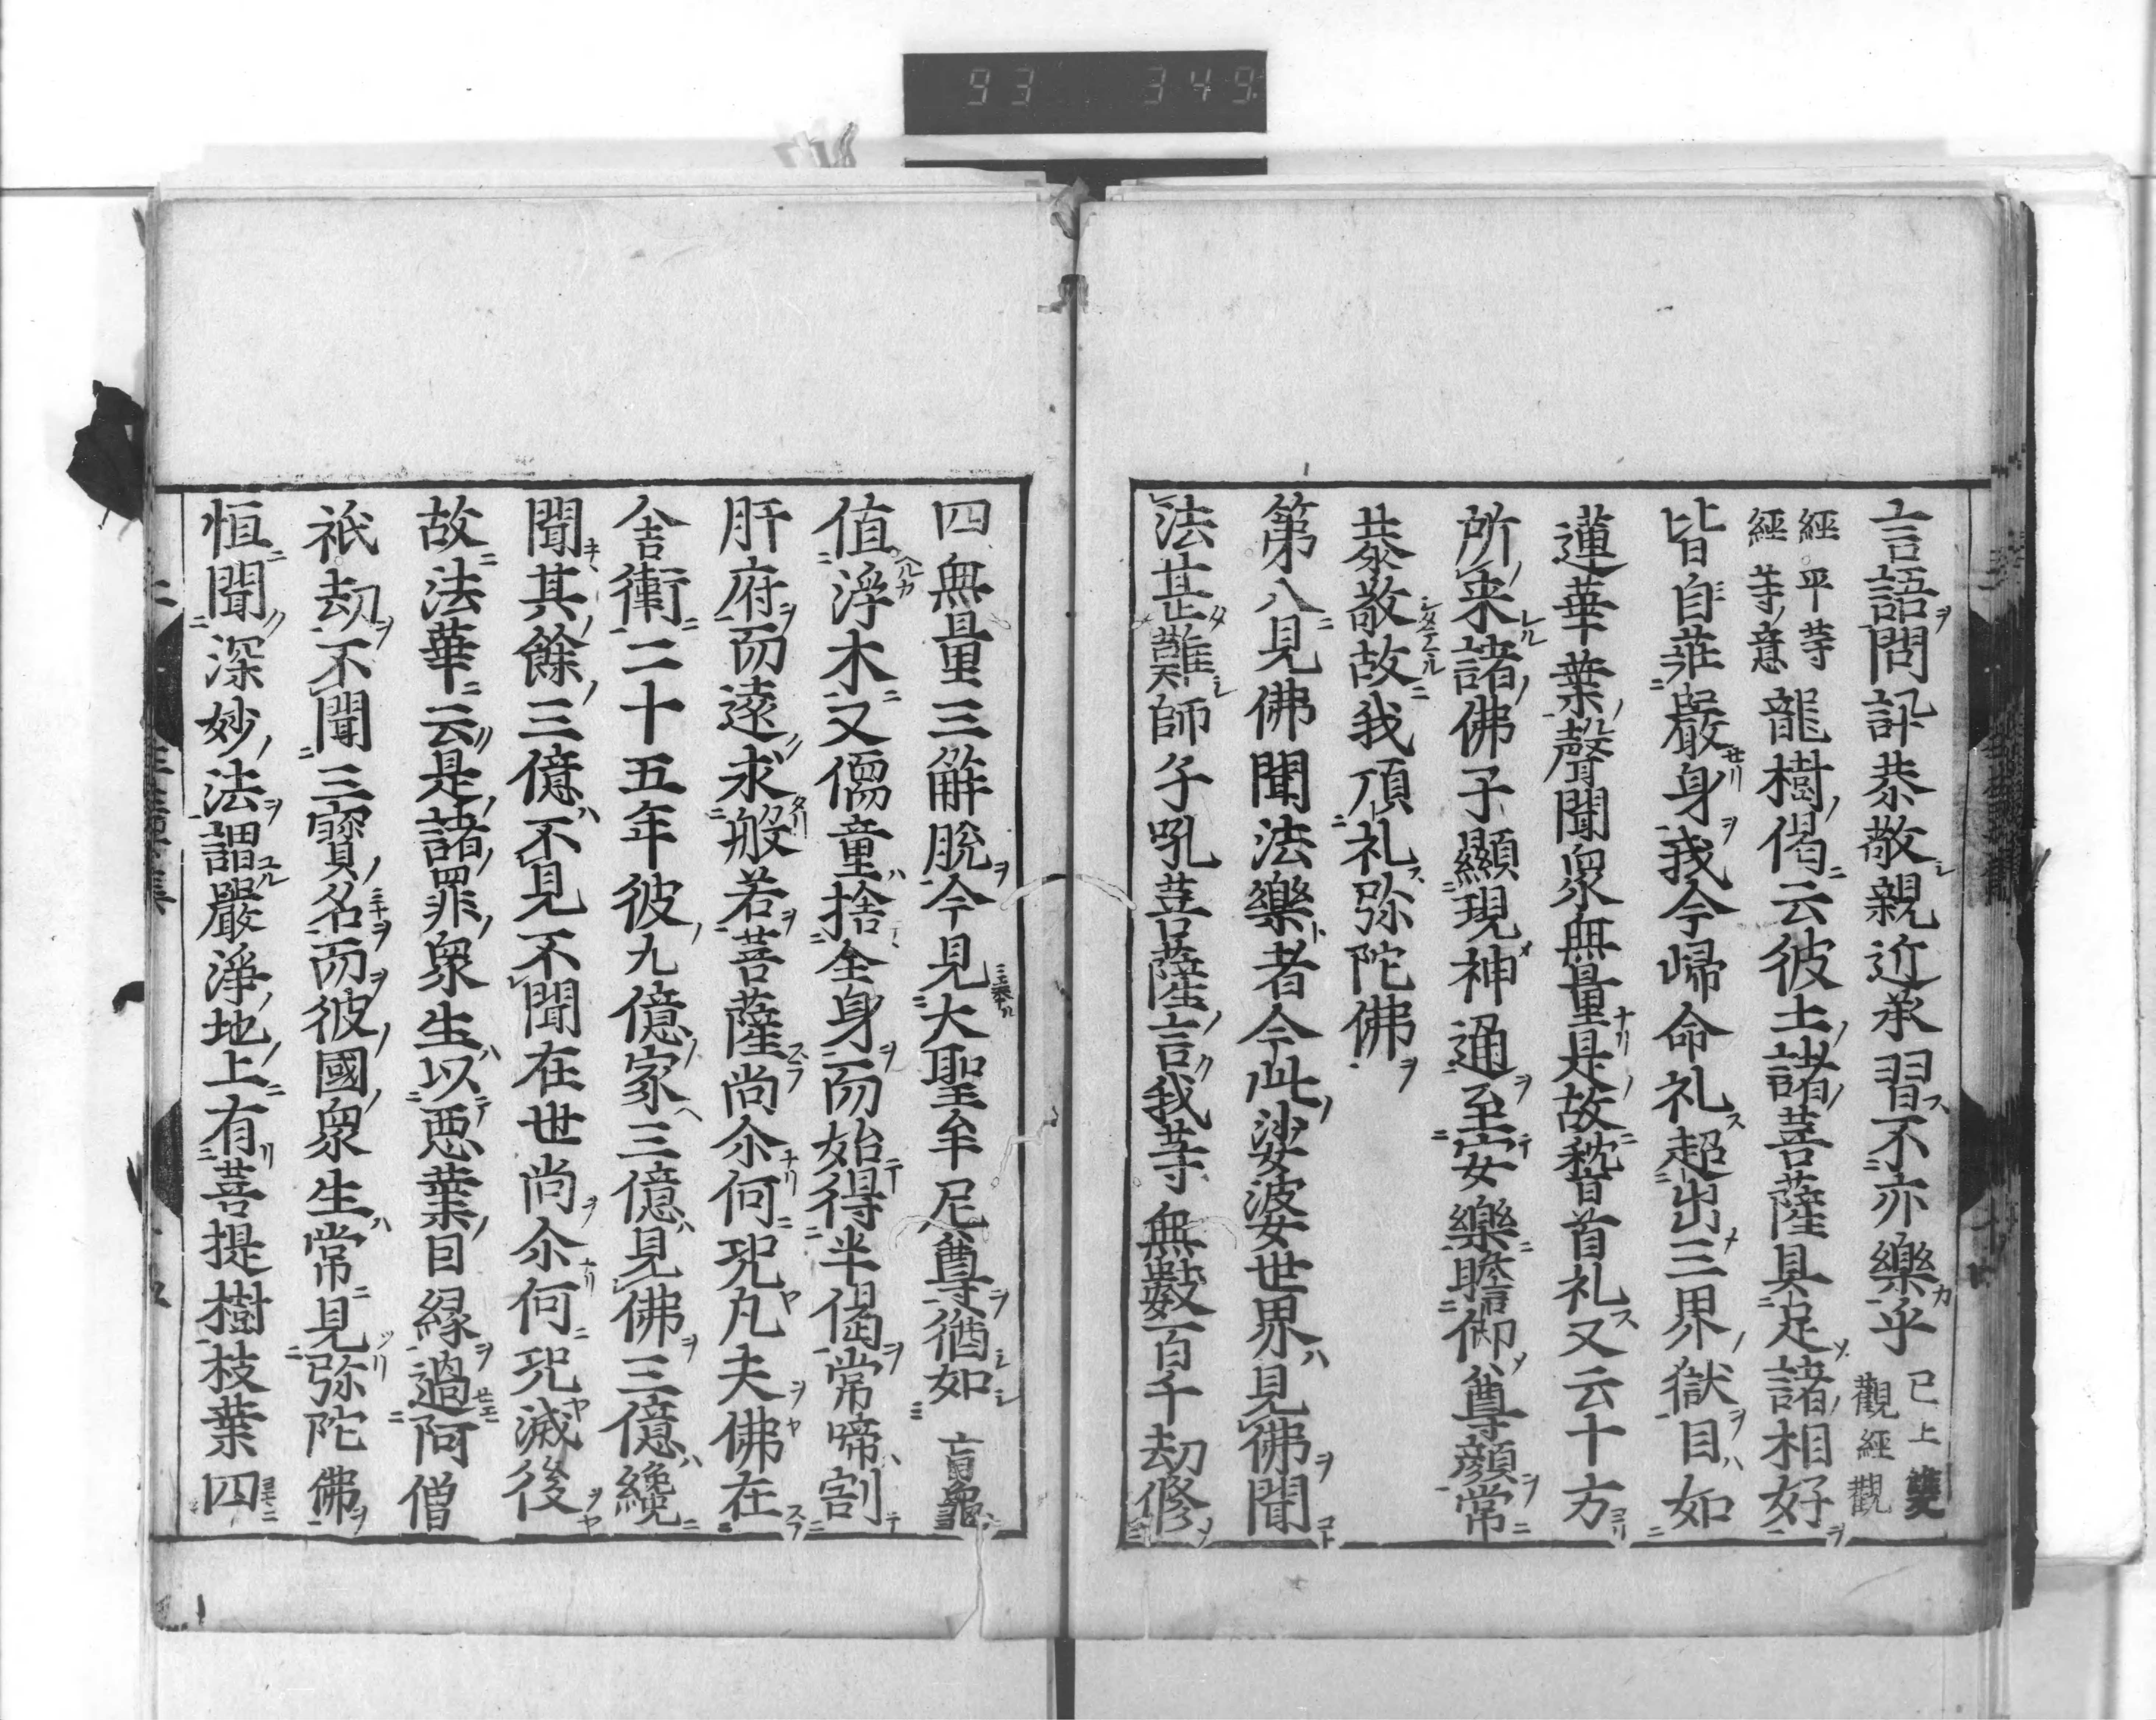 93 349
言語問訊恭敬親近承習不亦樂乎 已上雙觀經觀
經平等經等意 龍樹偈云彼土諸菩薩具足諸相好
皆自莊嚴身我今歸命礼超出三界獄目如
蓮華葉聲聞衆無量是故稽首礼又云十方
所来諸佛子顯現神通至安樂瞻仰尊顔常
恭敬故我頂礼弥陀佛
第八見佛聞法樂者今此娑婆世界見佛聞
法甚難師子吼菩薩言我等無數百千劫修
四無量三解脫今見大聖牟尼尊猶如盲龜
值浮木又儒童捨全身而始得半偈常啼割
肝府而遠求般若菩薩尚尒何况凡夫佛在
舍衛二十五年彼九億家三億見佛三億纔
聞其餘三億不見不聞在世尚尒何况滅後
故法華云是諸罪衆生以悪業因縁過阿僧
祇劫不聞三寳名而彼國衆生常見弥陀佛
恒聞深妙法謂嚴淨地上有菩提樹枝葉四